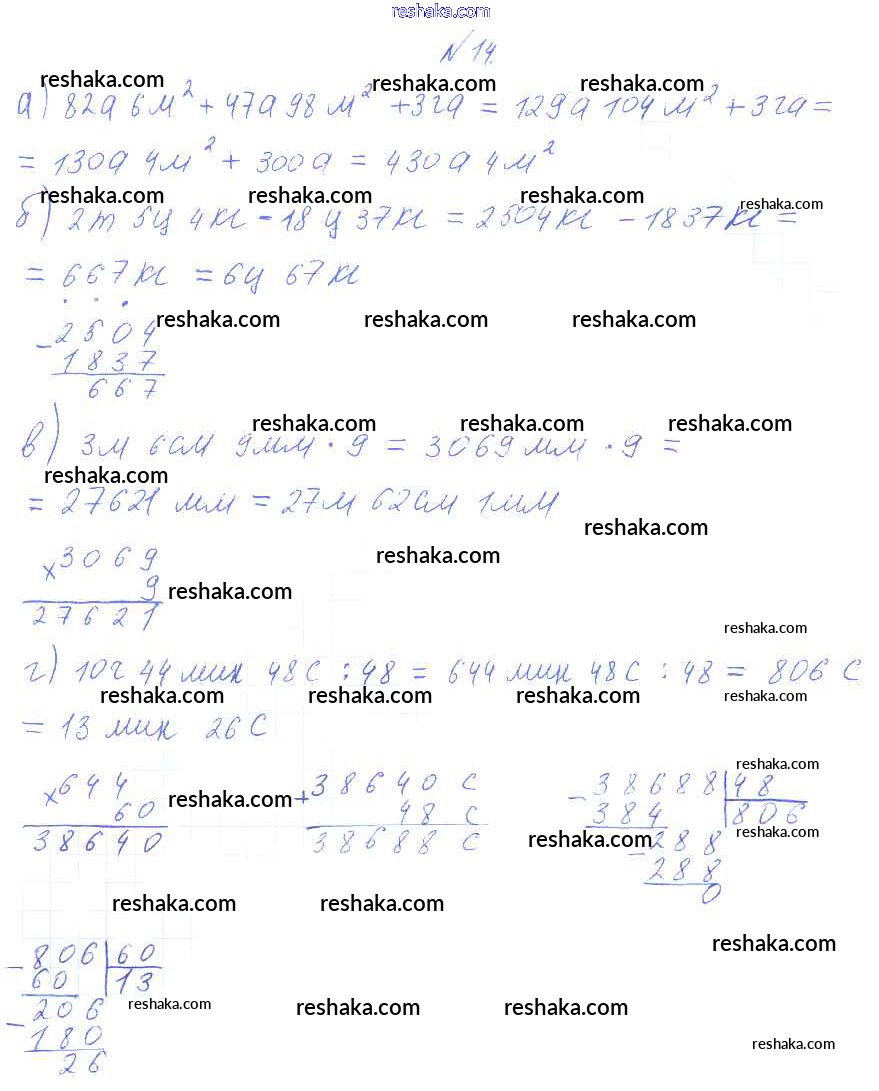 reshaka.com
№ 14.
reshaka.com reshaka.com reshaka.com
а) 82а 6м² + 47а 98м² + 3га = 129а 104м² + 3га =
= 130а 4м² + 300а = 430а 4м²
reshaka.com reshaka.com reshaka.com reshaka.com
б) 2т 5ц 4кг - 18ц 37кг = 2504кг - 1837кг =
= 667кг = 6ц 67кг
reshaka.com reshaka.com reshaka.com
- 2504
1837
667
reshaka.com reshaka.com reshaka.com
в) 3м 6см 9мм · 9 = 3069мм · 9 =
reshaka.com
= 27621 мм = 27м 62см 1мм
reshaka.com
reshaka.com
× 3069
9
reshaka.com
27621
reshaka.com
г) 10ч 44мин 48с : 48 = 644мин 48с : 48 = 806 с
reshaka.com reshaka.com reshaka.com reshaka.com
= 13 мин 26с
reshaka.com
× 644
60
38640
reshaka.com
+ 38640 с
48 с
38688 с
- 38688 | 48
384 | 806
reshaka.com
reshaka.com
- 288
288
0
reshaka.com reshaka.com
reshaka.com
- 806 | 60
60 | 13
- 206
180
26
reshaka.com reshaka.com reshaka.com
reshaka.com